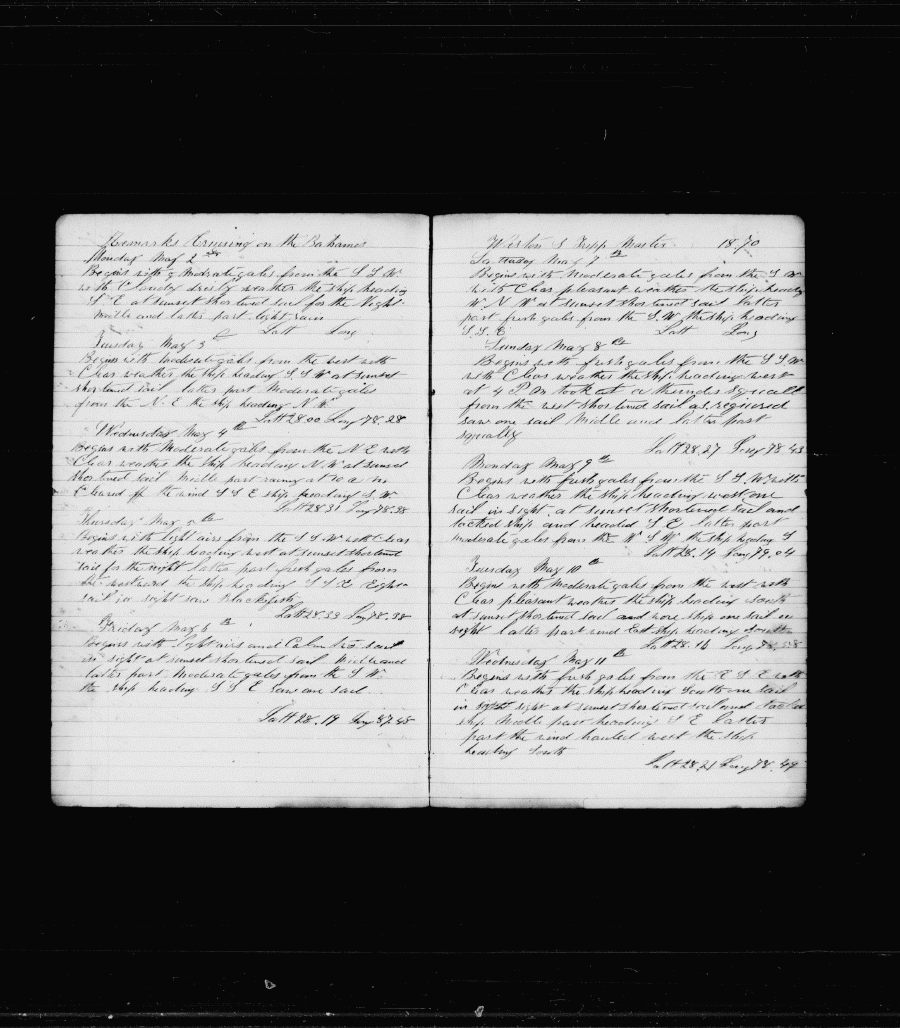 Remarks Cruising on the Bahames
Monday May 2nd
Begins with moderate gales from the S S W
with Cloudy drisly weather the ship heading
S E at sunset shortened sail for the Night
Midle and latter part light rain
Latt Long
Tuesday May 3
Begins with moderate gales from the west with
Clear weather the ship heading S S W at sunset
shortened sail latter part Moderate gales
from the N. E the ship heading N W
Latt 28.00 Long 78.28
Wednesday May 4th
Begins with Moderate gales from the N E with
Clear weather the ship heading N. W at sunset
shortened sail Midle part rainy at 10 a m
Cleared off the wind S S E ship heading S. W
Latt 28.31 Long 78.38
Thursday May 5th
Begins with light airs from the S S W with Clear
weather the ship heading west at sunset shortened
sail for the night latter part fresh gales from
the westward the ship heading S S E Eight
sail in sight saw Blackfish
Latt 28.33 Long 78.38
Friday May 6th
Begins with light airs and Calm two sail
in sight at sunset shortened sail Midle and
latter part Moderate gales from the S W
the ship heading S S E saw one sail
Latt 28.19 Long 87.48
Weston S Tripp Master 1870
Satturday May 7th
Begins with moderate gales from the S W
with Clear pleasant weather the ship heading
W N W at sunset shortened sail latter
part fresh gales from the S. W. the ship heading
S. S. E Latt Long
Sunday May 8th
Begins with fresh gales from the S S W
with Clear weather the ship heading west
at 4 P. M took at a thunder squall
from the west shortened sail as required
saw one sail Midle and latter part
squally
Latt 28.27 Long 78.43
Monday May 9th
Begins with fresh gales from the S S. W with
Clear weather the ship heading west one
sail in sight. at sunset shortened sail and
tacked ship and headed S E latter part
moderate gales from the W S W the ship heading S
Latt 28.14 Long 79.04
Tuesday May 10th
Begins with moderate gales from the west with
Clear pleasant weather the ship heading south
at sunset shortened sail and wore ship one sail in
sight latter part wind East ship heading South
Latt 28.18 Long
Wednesday May 11th
Begins with fresh gales from the E S E with
Clear weather the ship heading South one sail
in sight at sunset shortened sail and tacked
ship Midle part heading S E latter
part the wind hauled west the ship
heading South
Latt 28.21 Long 78.49